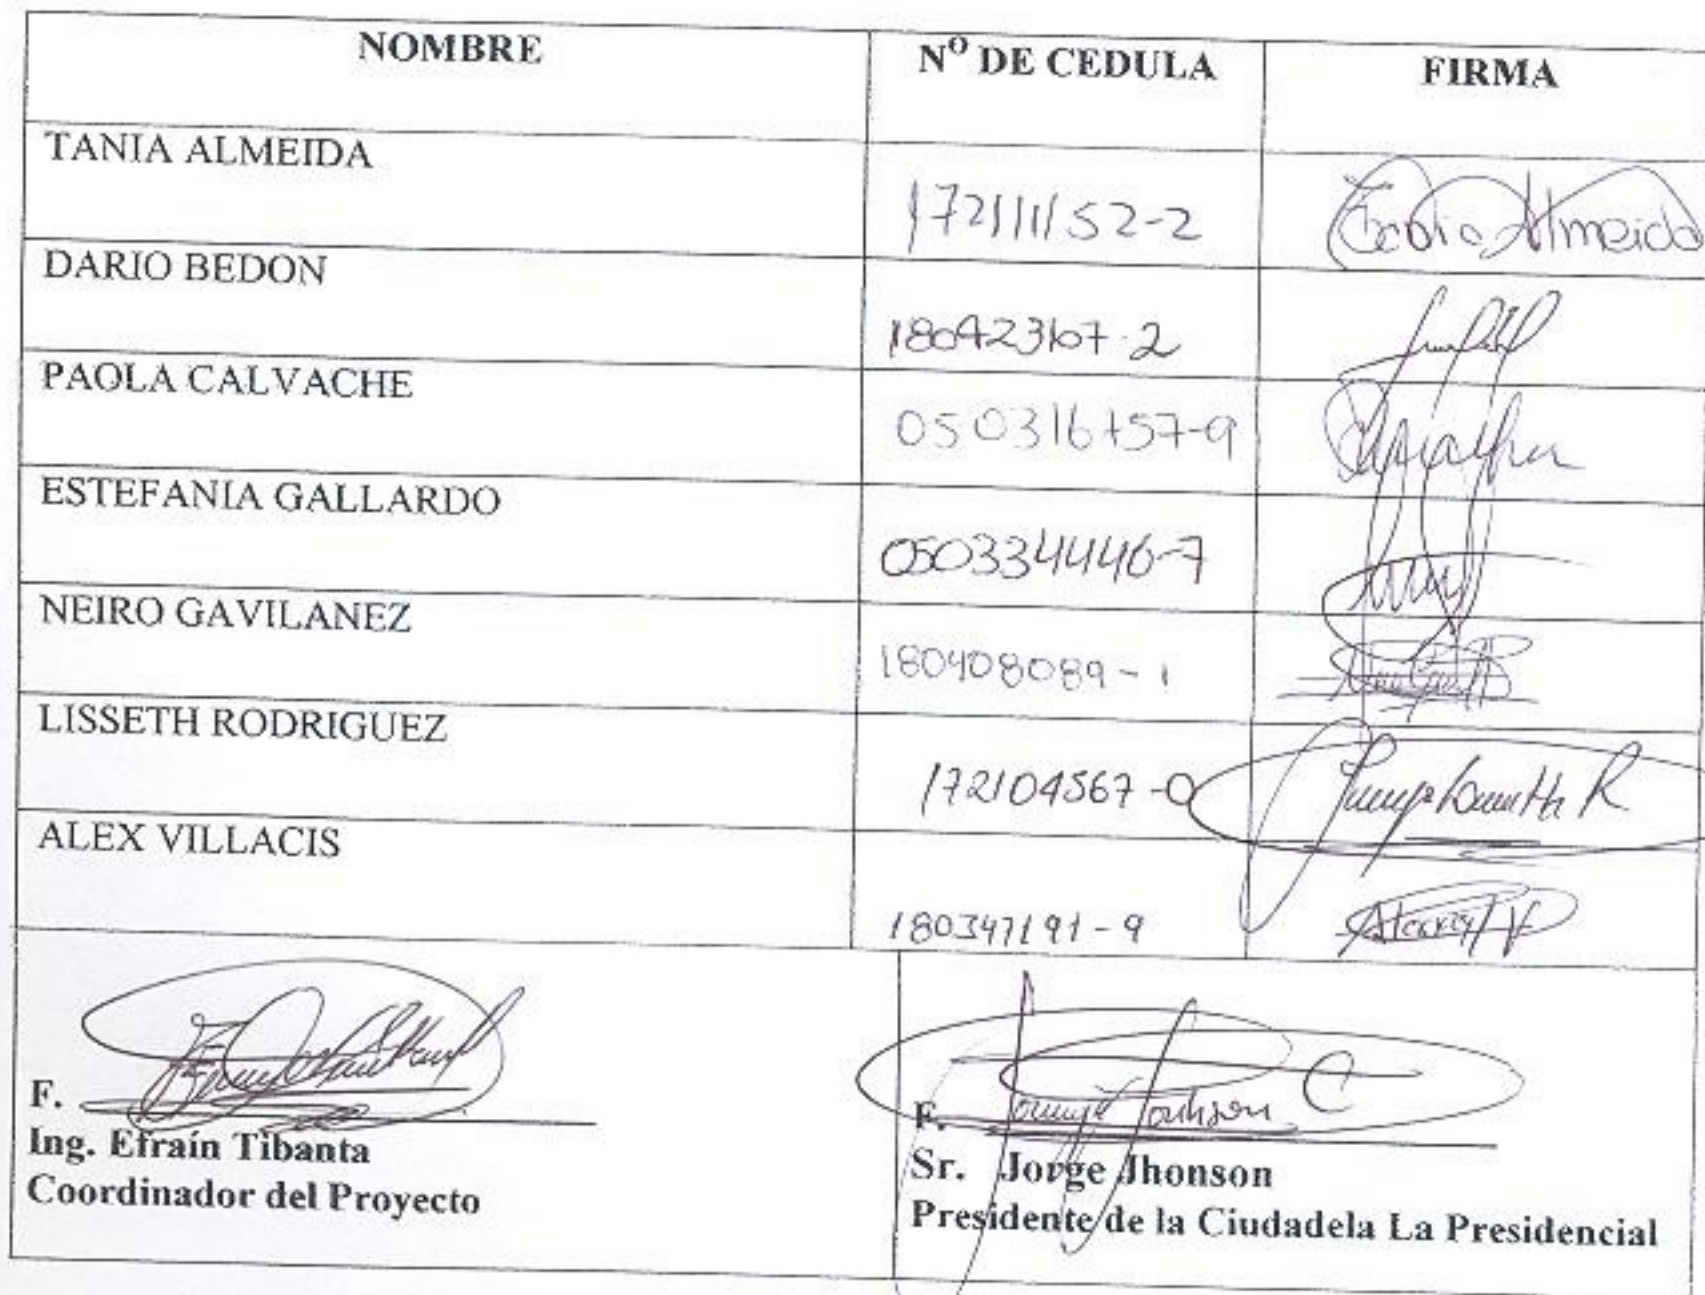 NOMBRE Nº DE CEDULA FIRMA
TANIA ALMEIDA 172111152-2 Almeida
DARIO BEDON 180423167-2
PAOLA CALVACHE 050316757-9
ESTEFANIA GALLARDO 050334446-7
NEIRO GAVILANEZ 180408089-1
LISSETH RODRIGUEZ 172104567-0
ALEX VILLACIS 180347191-9
F. F.
Ing. Efraín Tibanta Sr. Jorge Jhonson
Coordinador del Proyecto Presidente de la Ciudadela La Presidencial